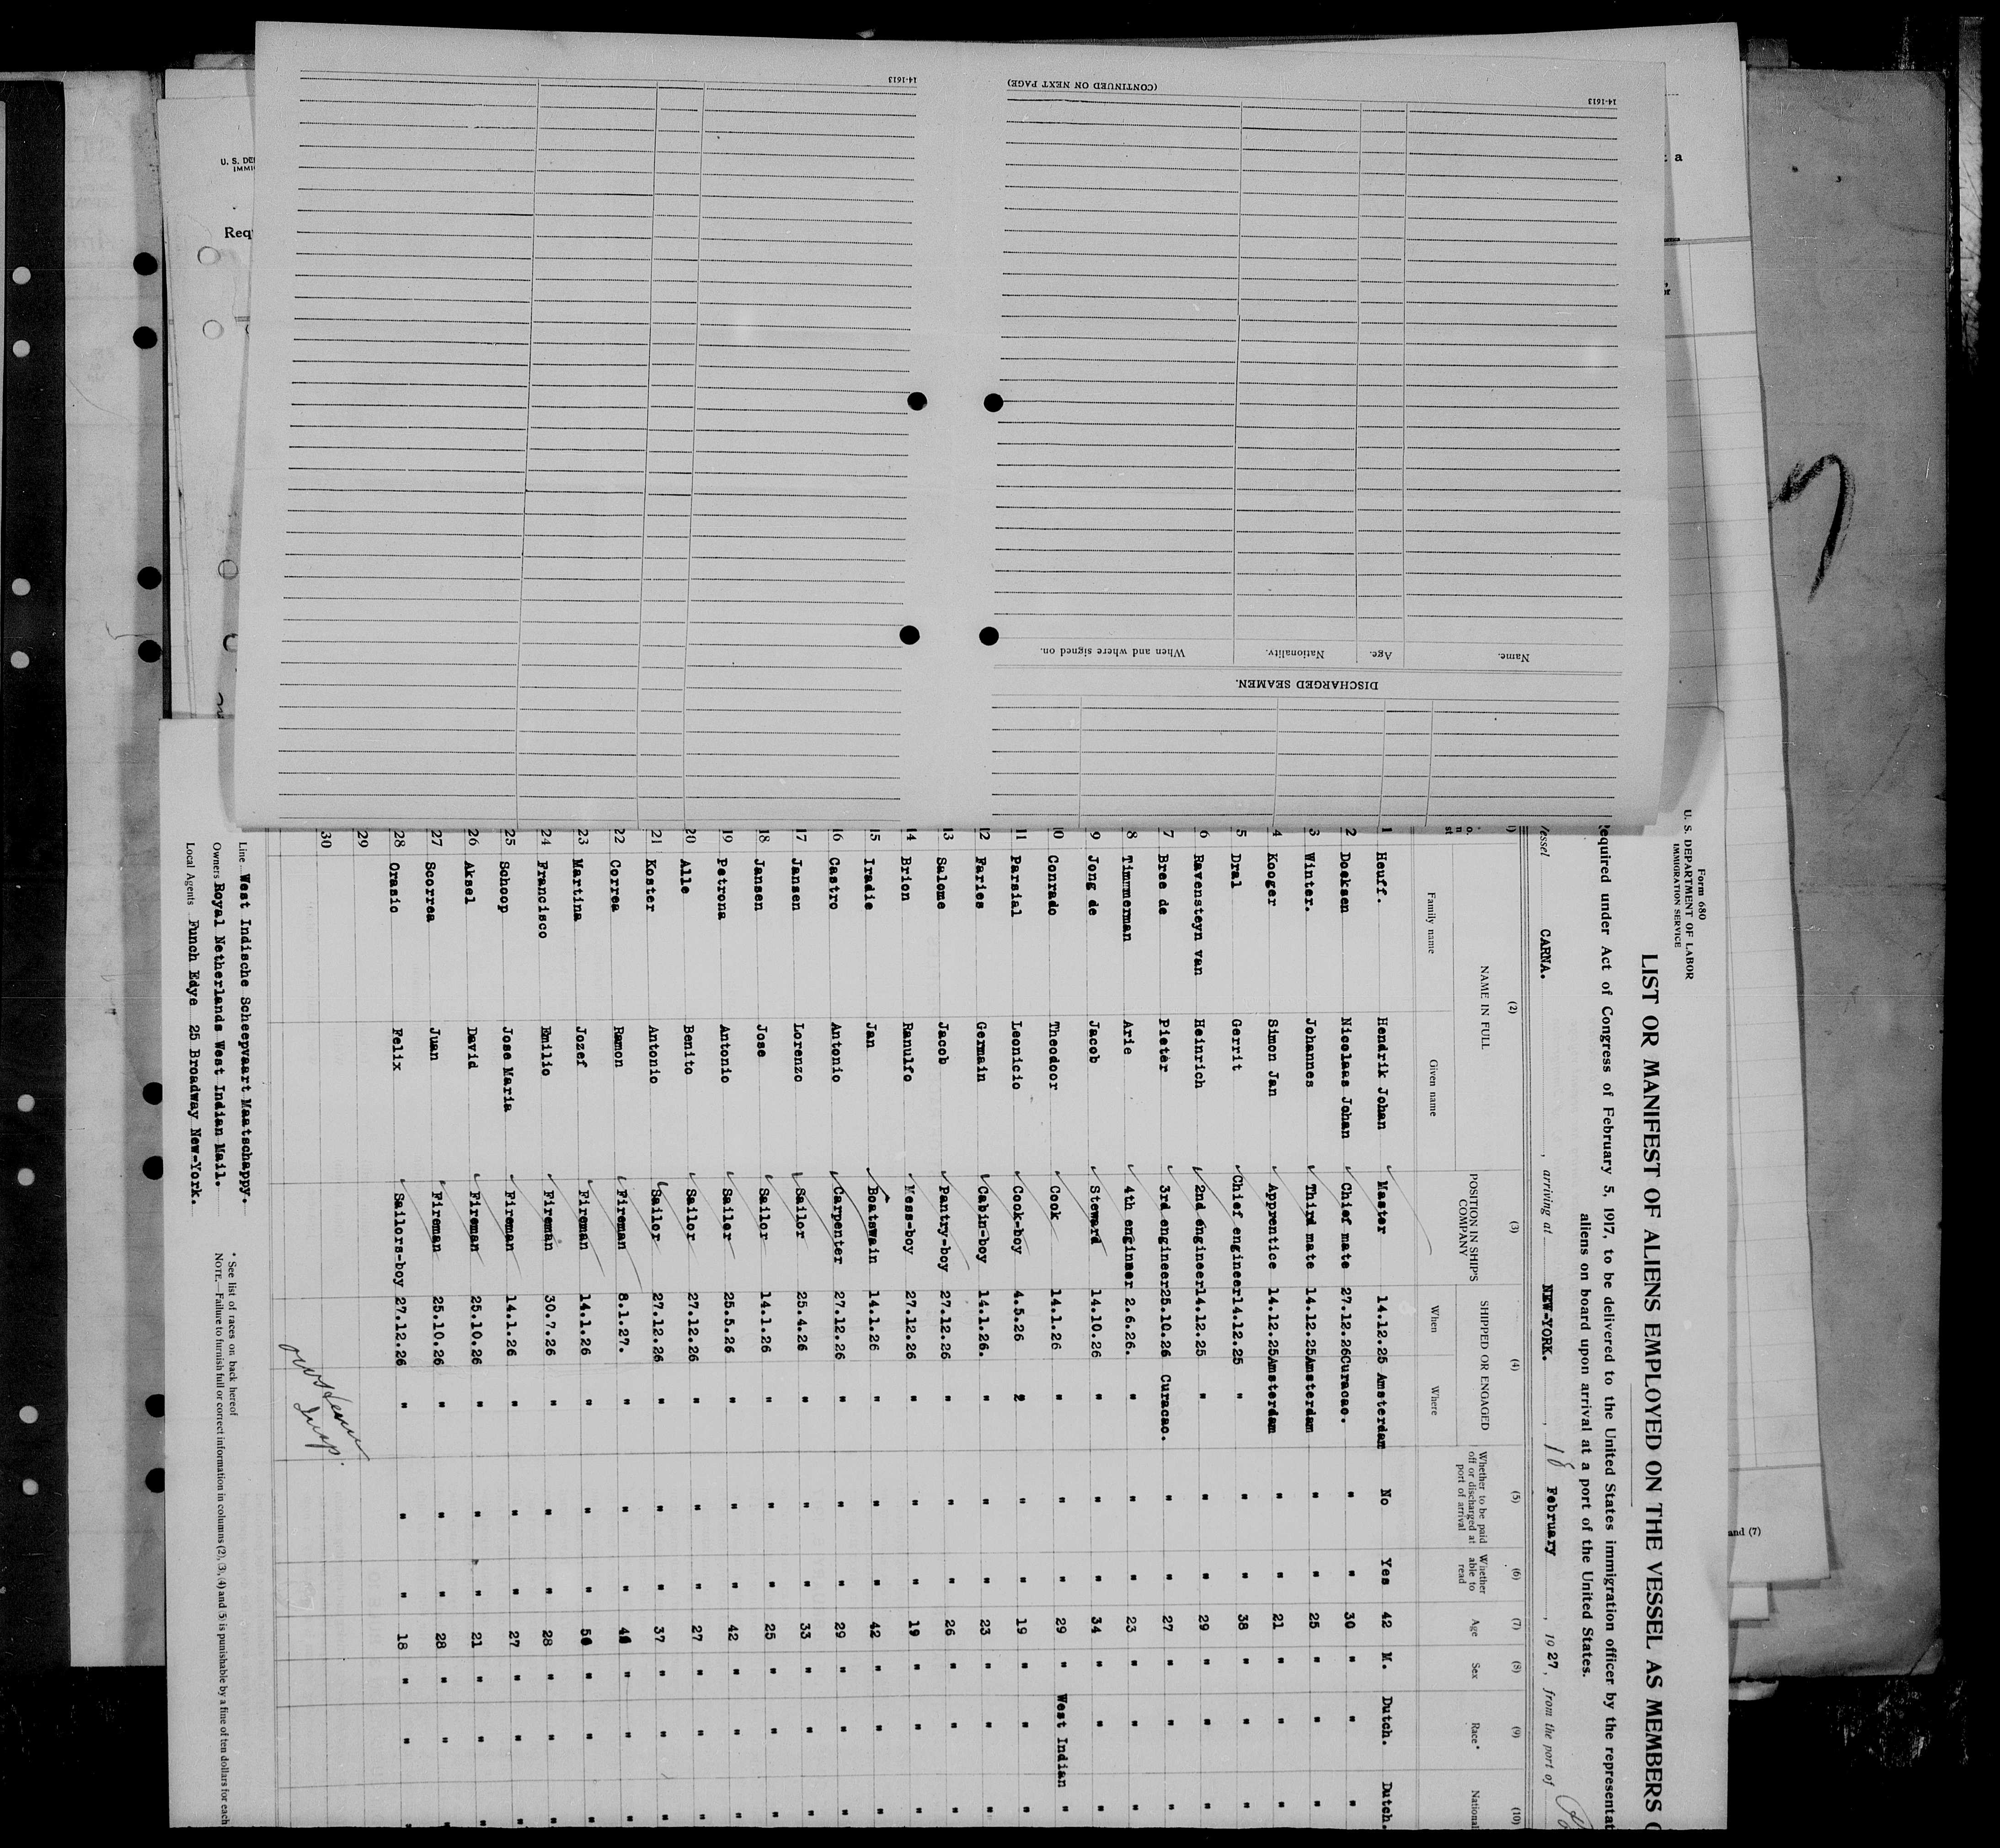 14-1613
(CONTINUED ON NEXT PAGE)
14-1613
DISCHARGED SEAMEN.
Name. Age. Nationality. When and where signed on.
U. S. DE
IMMI
Req
a
and (7)
Form 680
U. S. DEPARTMENT OF LABOR
IMMIGRATION SERVICE
LIST OR MANIFEST OF ALIENS EMPLOYED ON THE VESSEL AS MEMBERS
equired under Act of Congress of February 5, 1917, to be delivered to the United States immigration officer by the representat
aliens on board upon arrival at a port of the United States.
essel CARNA. , arriving at NEW-YORK. , 18 February , 1927, from the port of
(2) (3) (4) (5) (6) (7) (8) (9) (10)
NAME IN FULL POSITION IN SHIP'S COMPANY SHIPPED OR ENGAGED Whether to be paid off or discharged at port of arrival Whether able to read Age Sex Race* National
Family name Given name When Where
1 Heuff. Hendrik Johan Master 14.12.25 Amsterdam No Yes 42 M. Dutch. Dutch.
2 Doeksen Nicolaas Johan Chief mate 27.12.26 Curacao. " " 30 " " "
3 Winter. Johannes Third mate 14.12.25 Amsterdam " " 25 " " "
4 Kooger Simon Jan Apprentice 14.12.25 Amsterdam " " 21 " " "
5 Dral Gerrit Chief engineer 14.12.25 " " " 38 " " "
6 Ravensteyn van Heinrich 2nd engineer 14.12.25 " " " 29 " " "
7 Bree de Pieter 3rd engineer 25.10.26 Curacao. " " 27 " " "
8 Timmerman Arie 4th engineer 2.6.26. " " " 23 " " "
9 Jong de Jacob Steward 14.10.26 " " " 34 " " "
10 Conrado Theodoor Cook 14.1.26 " " " 29 " West Indian "
11 Parsial Leonicio Cook-boy 4.5.26 2 " " 19 " " "
12 Faries Germain Cabin-boy 14.1.26. " " " 23 " " "
13 Salome Jacob Pantry-boy 27.12.26 " " " 26 " " "
14 Brion Ranulfo Mess-boy 27.12.26 " " " 19 " " "
15 Iradie Jan Boatswain 14.1.26 " " " 42 " " "
16 Castro Antonio Carpenter 27.12.26 " " " 29 " " "
17 Jansen Lorenzo Sailor 25.4.26 " " " 33 " " "
18 Jansen Jose Sailor 14.1.26 " " " 25 " " "
19 Petrona Antonio Sailer 25.5.26 " " " 42 " " "
20 Alle Benito Sailor 27.12.26 " " " 27 " " "
21 Koster Antonio Sailor 27.12.26 " " " 37 " " "
22 Correa Ramon Fireman 8.1.27. " " " " " "
23 Martina Jozef Fireman 14.1.26 " " " " " "
24 Francisco Emilio Fireman 30.7.26 " " " 28 " " "
25 Schoop Jose Maria Fireman 14.1.26 " " " 27 " " "
26 Aksel David Fireman 25.10.26 " " " 21 " " "
27 Scorrea Juan Fireman 25.10.26 " " " 28 " " "
28 Orasio Felix Sailors-boy 27.12.26 " " " 18 " " "
29
30
Insp.
Line West Indische Scheepvaart Maatschappy.
Owners Royal Netherlands West Indian Mail.
Local Agents Funch Edye 25 Broadway New-York.
* See list of races on back hereof
NOTE.—Failure to furnish full or correct information in columns (2), (3), (4) and (5) is punishable by a fine of ten dollars for each